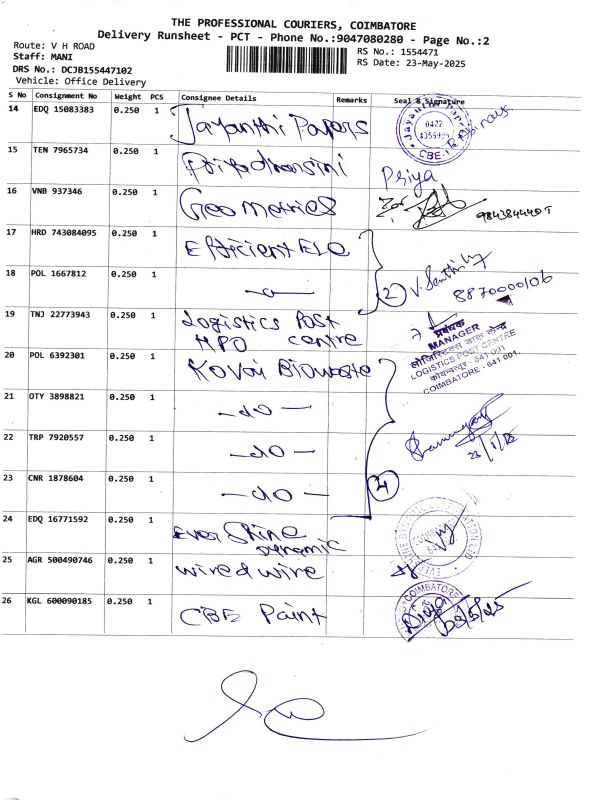 THE PROFESSIONAL COURIERS, COIMBATORE
Delivery Runsheet - PCT - Phone No.:9047080280 - Page No.:2
Route: V H ROAD
Staff: MANI
DRS No.: DCJB155447102
Vehicle: Office Delivery
RS No.: 1554471
RS Date: 23-May-2025
S No Consignment No Weight PCS Consignee Details Remarks Seal & Signature
14 EDQ 15083383 0.250 1 Jayanthi Papers
0422
CBE-1
15 TEN 7965734 0.250 1 Priyadharsini Priya
16 VNB 937346 0.250 1 Geo Metries
17 HRD 743084095 0.250 1 Efficient Ele
18 POL 1667812 0.250 1 (2) V. Senthil
8870000106
19 TNJ 22773943 0.250 1 Logistics Post
HPO centre
प्रबंधक
MANAGER
लॉजिस्टिक्स डाक केन्द्र
LOGISTICS POST CENTRE
कोयम्बत्तूर - 641 001.
COIMBATORE - 641 001.
20 POL 6392301 0.250 1 Kovai Biowaste
21 OTY 3898821 0.250 1 - do -
22 TRP 7920557 0.250 1 - do -
23 CNR 1878604 0.250 1 - do - (4)
24 EDQ 16771592 0.250 1 Ever Shine
Dynamic
25 AGR 500490746 0.250 1 wired wire
26 KGL 600090185 0.250 1 CBE Paint
COIMBATORE
Divya
23/5/25